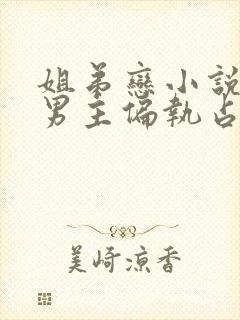 姐弟戀小說
男主偏執占
美崎涼香